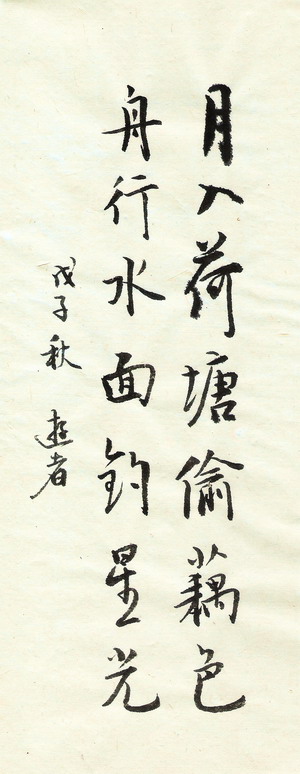 月入荷塘偷藕色
舟行水面钓星光
戊子秋 遊者